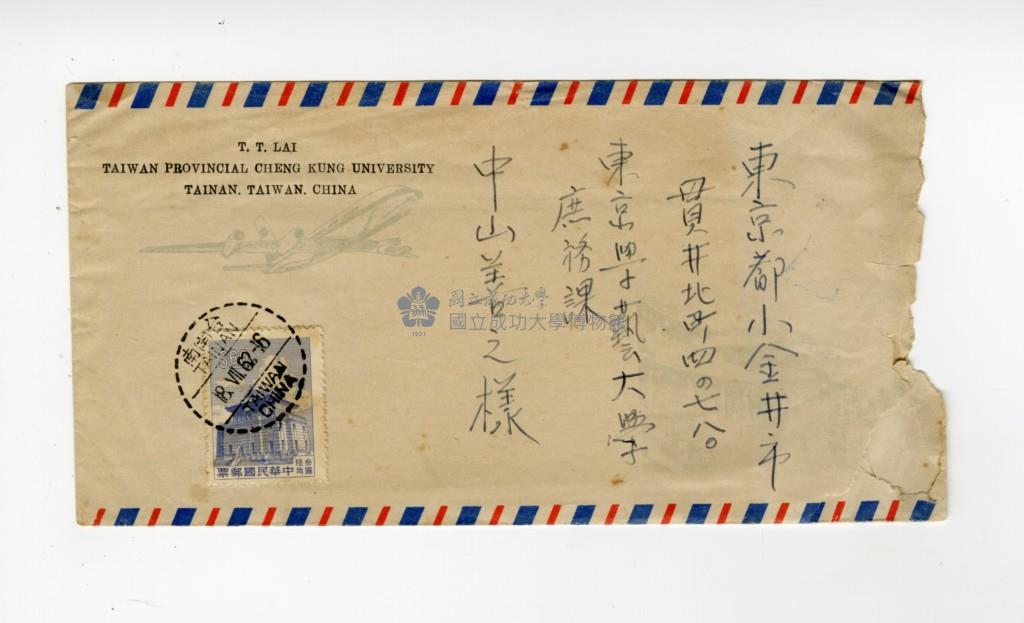 T. T. LAI
TAIWAN PROVINCIAL CHENG KUNG UNIVERSITY
TAINAN, TAIWAN, CHINA
東京都小金井市
貫井北町四の七八〇
東京學藝大學
庶務課
中山善之様
國立成功大學
國立成功大學博物館
1931
台南
TAINAN
18.VII.62-16
TAIWAN
CHINA
叁圓
陸角
中華民國郵票